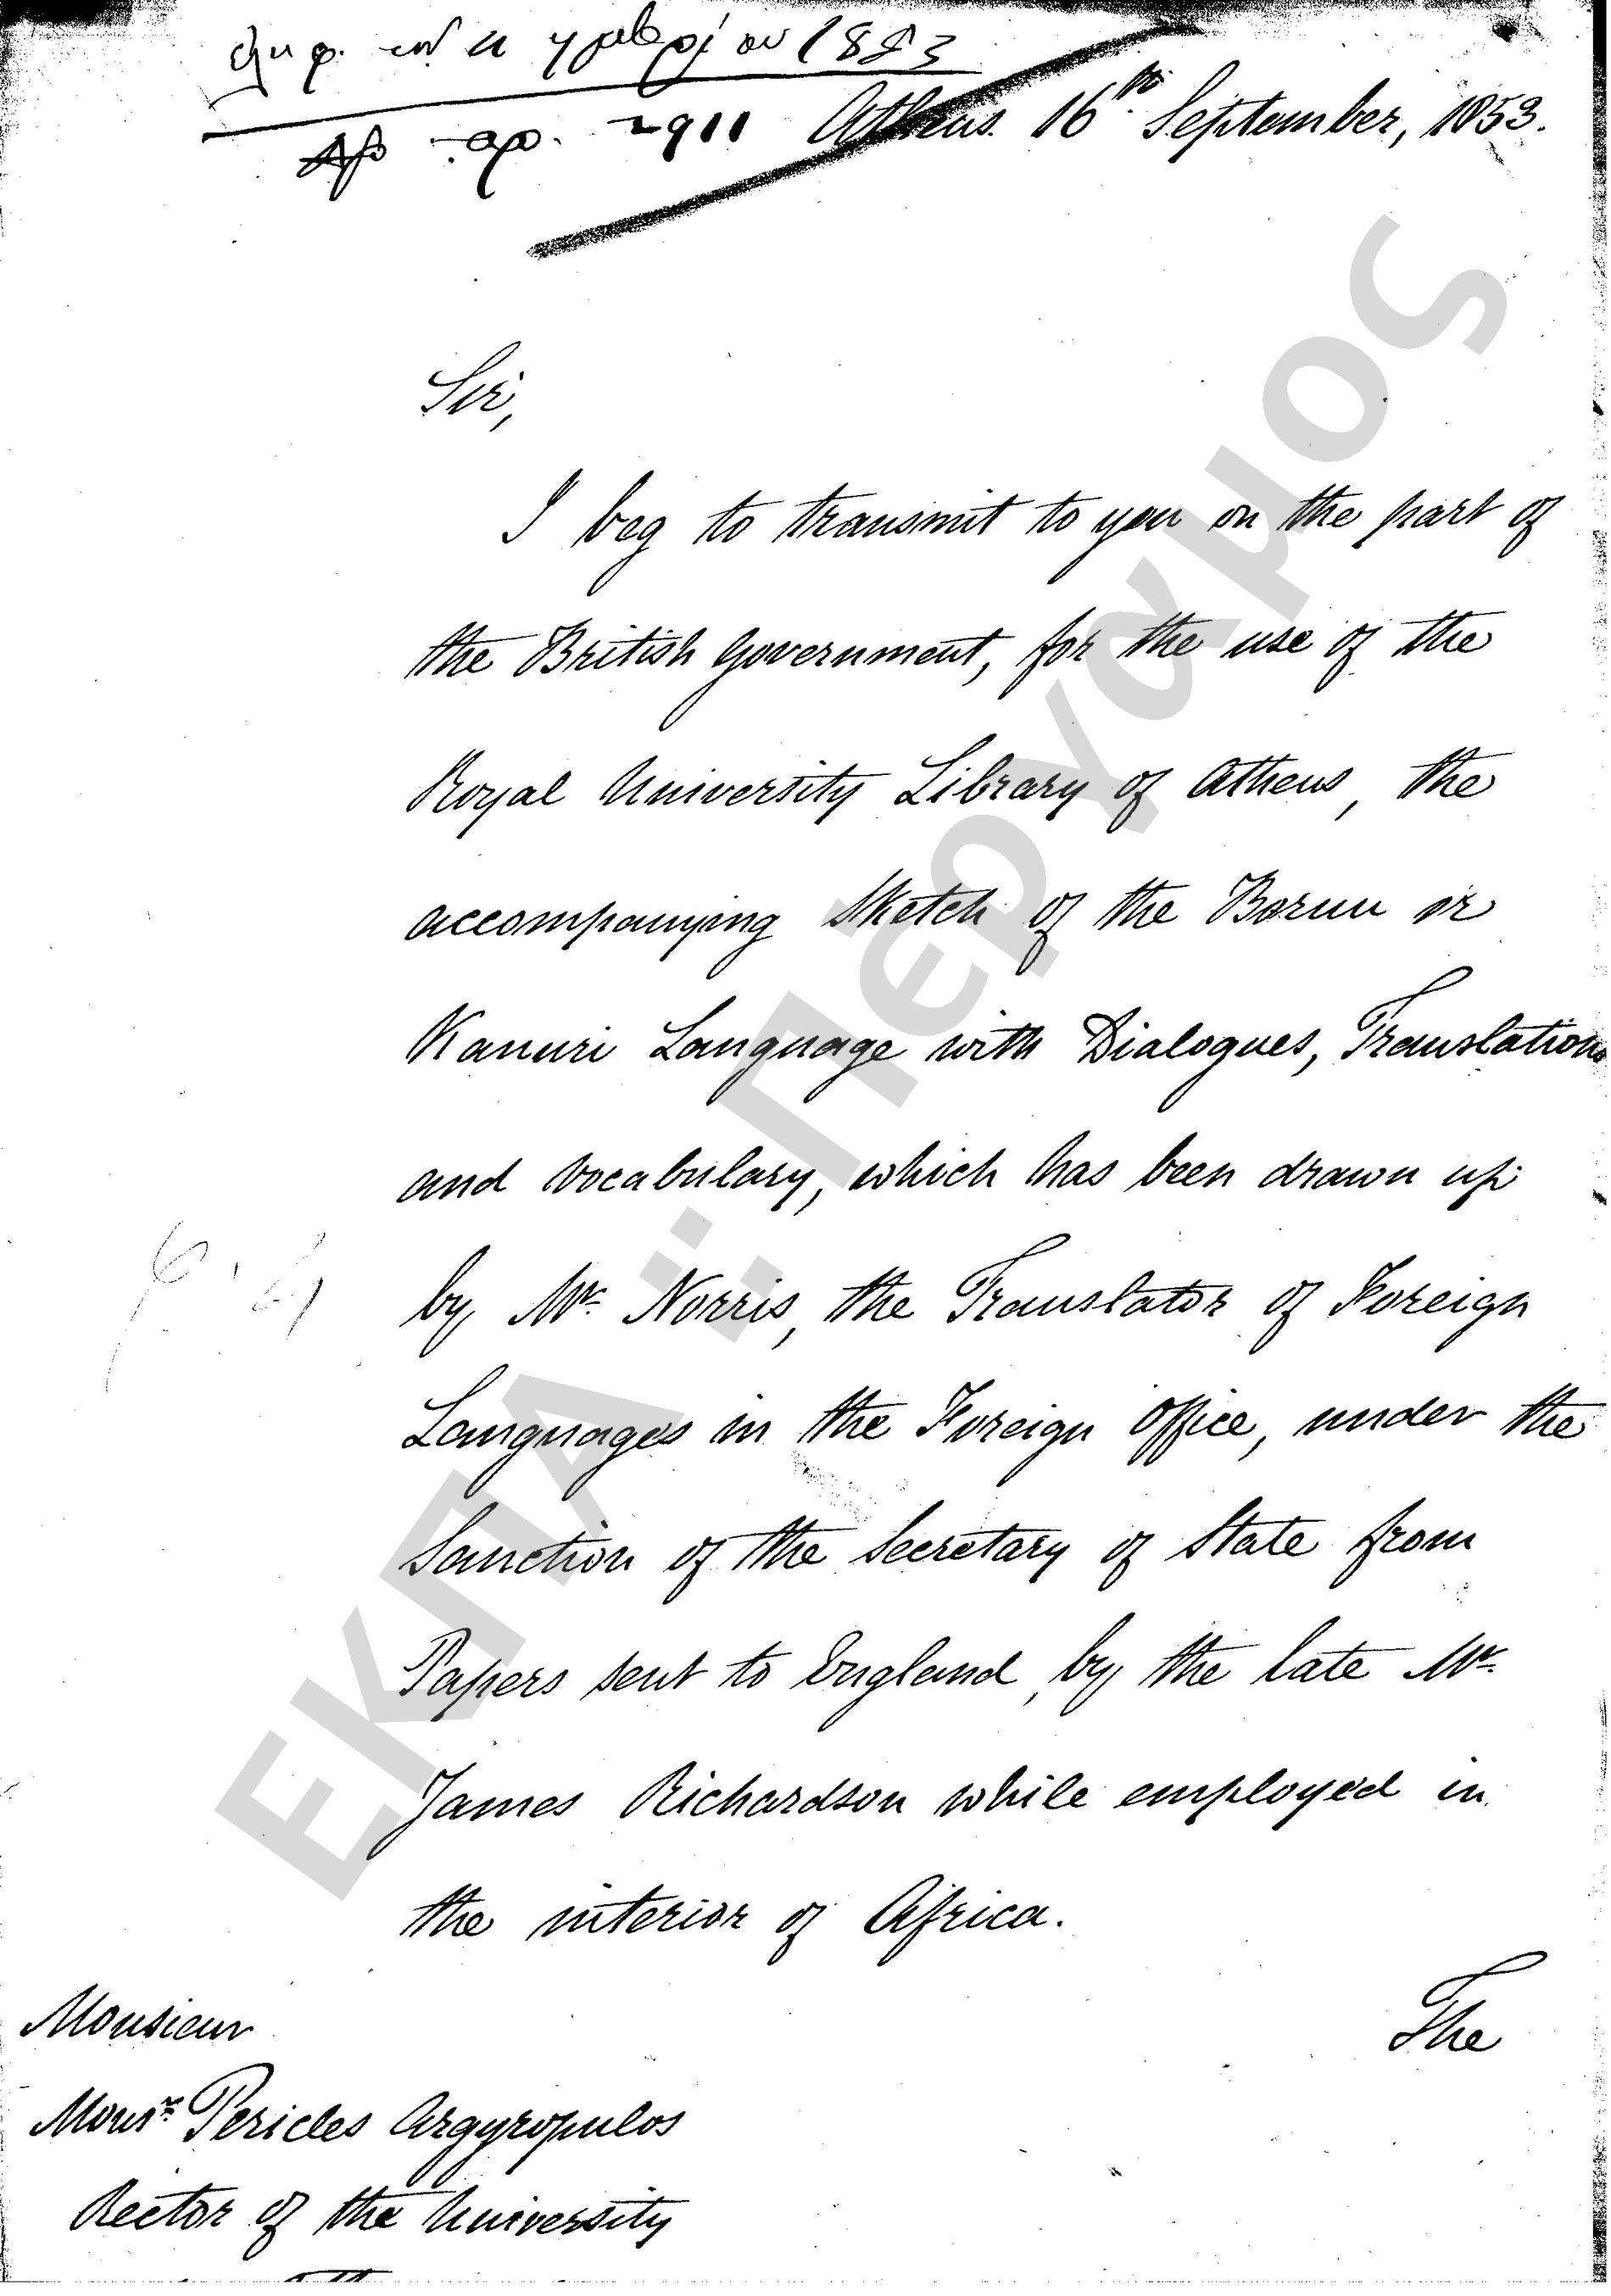 1853
2911 Athens. 16th September, 1853.
Sir,
I beg to transmit to you on the part of
the British Government, for the use of the
Royal University Library of Athens, the
accompanying Sketch of the Bornu or
Kanuri Language with Dialogues, Translations
and Vocabulary, which has been drawn up
by Mr. Norris, the Translator of Foreign
Languages in the Foreign Office, under the
Sanction of the Secretary of State from
Papers sent to England, by the late Mr.
James Richardson while employed in
the interior of Africa.
The
Monsieur
Monsr. Pericles Argyropulos
Rector of the University
ΕΚΠΑ :: Περγαμος